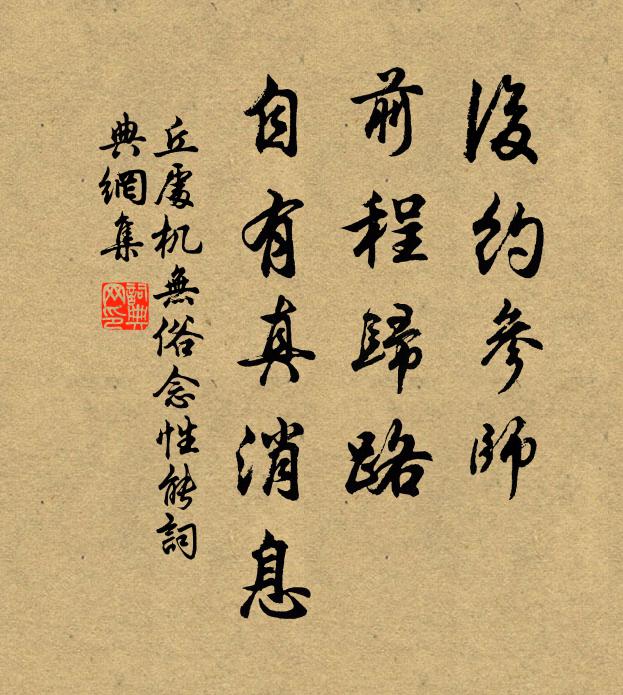 後約參師
前程歸路
自有真消息
丘處机無俗念性能詞
典網集
詞典
网印